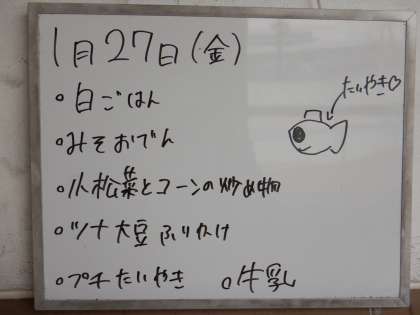 1月27日(金)
たいやき♡
・白ごはん
・みそおでん
・小松菜とコーンの炒め物
・ツナ大豆ふりかけ
・プチたいやき ○牛乳